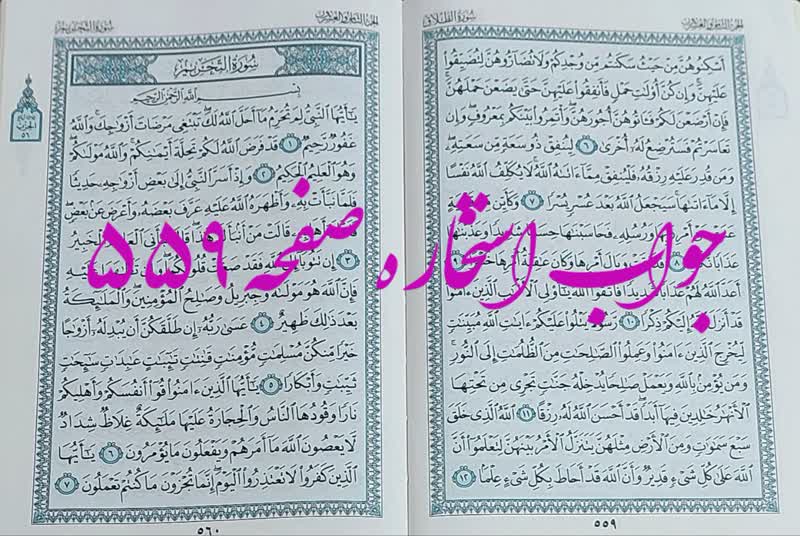 الجزء الثامن والعشرون
سورة الطلاق
أَسْكِنُوهُنَّ مِنْ حَيْثُ سَكَنتُم مِّن وُجْدِكُمْ وَلَا تُضَارُّوهُنَّ لِتُضَيِّقُوا
عَلَيْهِنَّ وَإِن كُنَّ أُولَاتِ حَمْلٍ فَأَنفِقُوا عَلَيْهِنَّ حَتَّىٰ يَضَعْنَ حَمْلَهُنَّ
فَإِنْ أَرْضَعْنَ لَكُمْ فَآتُوهُنَّ أُجُورَهُنَّ وَأْتَمِرُوا بَيْنَكُم بِمَعْرُوفٍ وَإِن
تَعَاسَرْتُمْ فَسَتُرْضِعُ لَهُ أُخْرَىٰ ٦ لِيُنفِقْ ذُو سَعَةٍ مِّن سَعَتِهِ
وَمَن قُدِرَ عَلَيْهِ رِزْقُهُ فَلْيُنفِقْ مِمَّا آتَاهُ اللَّهُ لَا يُكَلِّفُ اللَّهُ نَفْسًا
إِلَّا مَا آتَاهَا سَيَجْعَلُ اللَّهُ بَعْدَ عُسْرٍ يُسْرًا ٧ وَكَأَيِّن
وَرُسُلِهِ فَحَاسَبْنَاهَا
وَبَالَ أَمْرِهَا وَكَانَ عَاقِبَةُ
أَعَدَّ اللَّهُ لَهُمْ عَذَابًا شَدِيدًا فَاتَّقُوا اللَّهَ يَا أُولِي الْأَلْبَابِ الَّذِينَ آمَنُوا
قَدْ أَنزَلَ اللَّهُ إِلَيْكُمْ ذِكْرًا ١٠ رَّسُولًا يَتْلُو عَلَيْكُمْ آيَاتِ اللَّهِ مُبَيِّنَاتٍ
لِّيُخْرِجَ الَّذِينَ آمَنُوا وَعَمِلُوا الصَّالِحَاتِ مِنَ الظُّلُمَاتِ إِلَى النُّورِ
وَمَن يُؤْمِن بِاللَّهِ وَيَعْمَلْ صَالِحًا يُدْخِلْهُ جَنَّاتٍ تَجْرِي مِن تَحْتِهَا
الْأَنْهَارُ خَالِدِينَ فِيهَا أَبَدًا قَدْ أَحْسَنَ اللَّهُ لَهُ رِزْقًا ١١ اللَّهُ الَّذِي خَلَقَ
سَبْعَ سَمَاوَاتٍ وَمِنَ الْأَرْضِ مِثْلَهُنَّ يَتَنَزَّلُ الْأَمْرُ بَيْنَهُنَّ لِتَعْلَمُوا أَنَّ
اللَّهَ عَلَىٰ كُلِّ شَيْءٍ قَدِيرٌ وَأَنَّ اللَّهَ قَدْ أَحَاطَ بِكُلِّ شَيْءٍ عِلْمًا ١٢
٥٥٩
الجزء الثامن والعشرون
سورة التحريم
سُورَةُ التَّحْرِيمِ
بِسْمِ اللَّهِ الرَّحْمَٰنِ الرَّحِيمِ
يَا أَيُّهَا النَّبِيُّ لِمَ تُحَرِّمُ مَا أَحَلَّ اللَّهُ لَكَ تَبْتَغِي مَرْضَاتَ أَزْوَاجِكَ وَاللَّهُ
غَفُورٌ رَّحِيمٌ ١ قَدْ فَرَضَ اللَّهُ لَكُمْ تَحِلَّةَ أَيْمَانِكُمْ وَاللَّهُ مَوْلَاكُمْ
وَهُوَ الْعَلِيمُ الْحَكِيمُ ٢ وَإِذْ أَسَرَّ النَّبِيُّ إِلَىٰ بَعْضِ أَزْوَاجِهِ حَدِيثًا
فَلَمَّا نَبَّأَتْ بِهِ وَأَظْهَرَهُ اللَّهُ عَلَيْهِ عَرَّفَ بَعْضَهُ وَأَعْرَضَ عَن بَعْضٍ
قَالَتْ مَنْ أَنبَأَكَ هَٰذَا قَالَ الْخَبِيرُ
٣ إِن تَتُوبَا فَقَدْ صَغَتْ قُلُوبُكُمَا
فَإِنَّ اللَّهَ هُوَ مَوْلَاهُ وَجِبْرِيلُ وَصَالِحُ الْمُؤْمِنِينَ وَالْمَلَائِكَةُ
بَعْدَ ذَٰلِكَ ظَهِيرٌ ٤ عَسَىٰ رَبُّهُ إِن طَلَّقَكُنَّ أَن يُبْدِلَهُ أَزْوَاجًا
خَيْرًا مِّنكُنَّ مُسْلِمَاتٍ مُّؤْمِنَاتٍ قَانِتَاتٍ تَائِبَاتٍ عَابِدَاتٍ سَائِحَاتٍ
ثَيِّبَاتٍ وَأَبْكَارًا ٥ يَا أَيُّهَا الَّذِينَ آمَنُوا قُوا أَنفُسَكُمْ وَأَهْلِيكُمْ
نَارًا وَقُودُهَا النَّاسُ وَالْحِجَارَةُ عَلَيْهَا مَلَائِكَةٌ غِلَاظٌ شِدَادٌ
لَّا يَعْصُونَ اللَّهَ مَا أَمَرَهُمْ وَيَفْعَلُونَ مَا يُؤْمَرُونَ ٦ يَا أَيُّهَا
الَّذِينَ كَفَرُوا لَا تَعْتَذِرُوا الْيَوْمَ إِنَّمَا تُجْزَوْنَ مَا كُنتُمْ تَعْمَلُونَ ٧
٥٦٠
الحزب
٥٦
جواب استخاره صفحه ۵۵۹